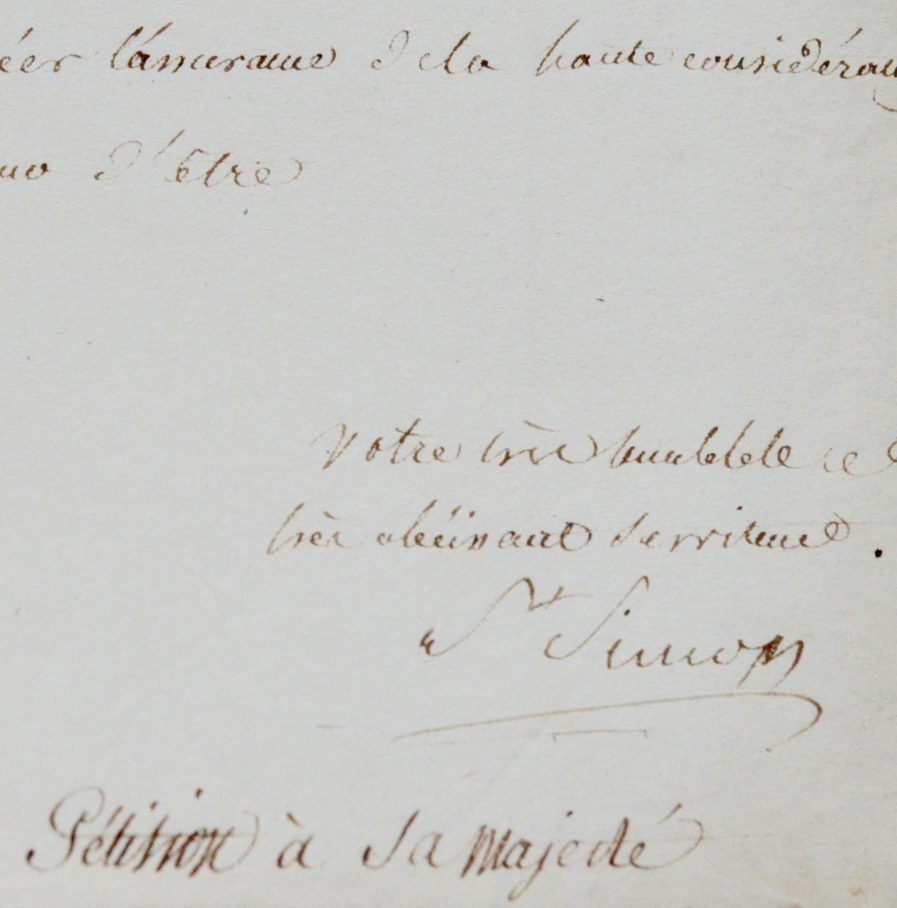 éer l'assurance de la haute considérat
d'être
Votre très humble et
très obéissant Serviteur.
St Simon
Pétition à Sa Majesté